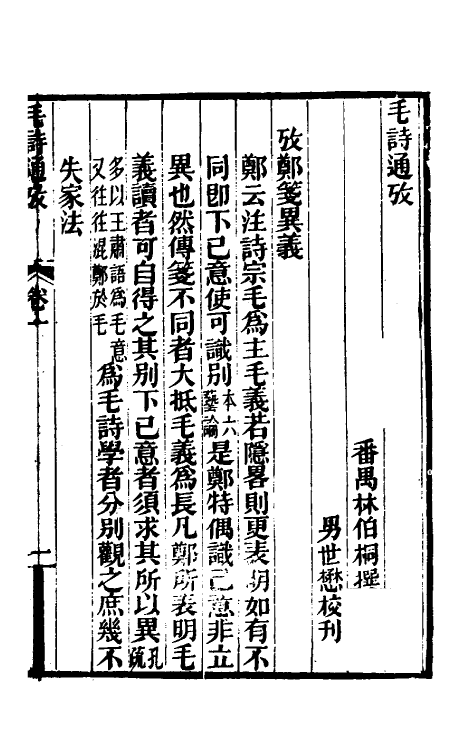 毛詩通攷
番禺林伯桐撰
男世懋校刊
攷鄭箋異義
鄭云注詩宗毛爲主毛義若隱畧則更表明如有不
同即下己意使可識別本六藝論是鄭特偶識己意非立
異也然傳箋不同者大抵毛義爲長凡鄭所表明毛
義讀者可自得之其別下己意者須求其所以異孔疏
多以王肅語爲毛意又往往混鄭於毛爲毛詩學者分別觀之庶幾不
失家法
毛詩通攷 卷一 一